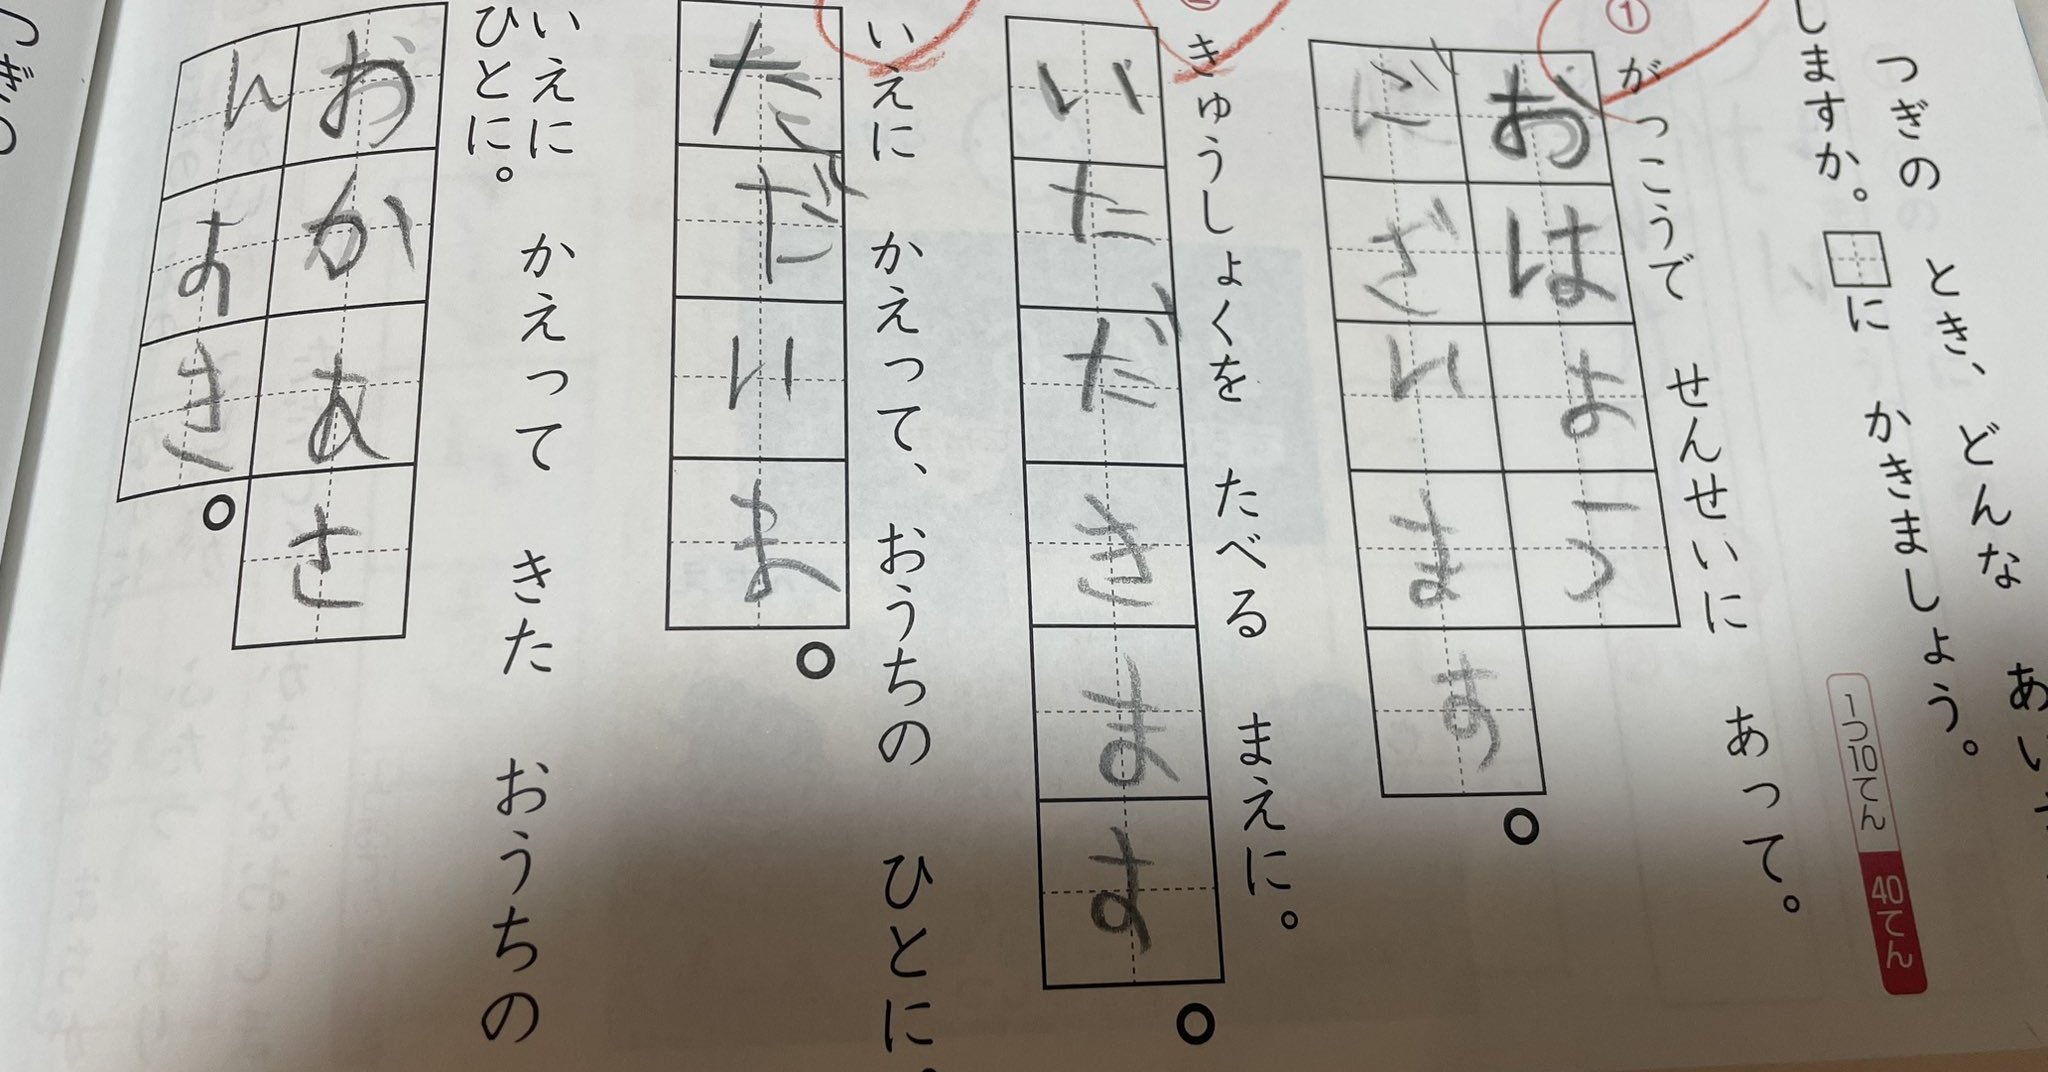 つぎの とき、どんな あい
しますか。□に かきましょう。
1つ10てん 40てん
① がっこうで せんせいに あって。
おはよう
ございます。
② きゅうしょくを たべる まえに。
いただきます。
いえに かえって、おうちの ひとに。
ただいま。
いえに かえって きた おうちの
ひとに。
おかあさ
んすき。